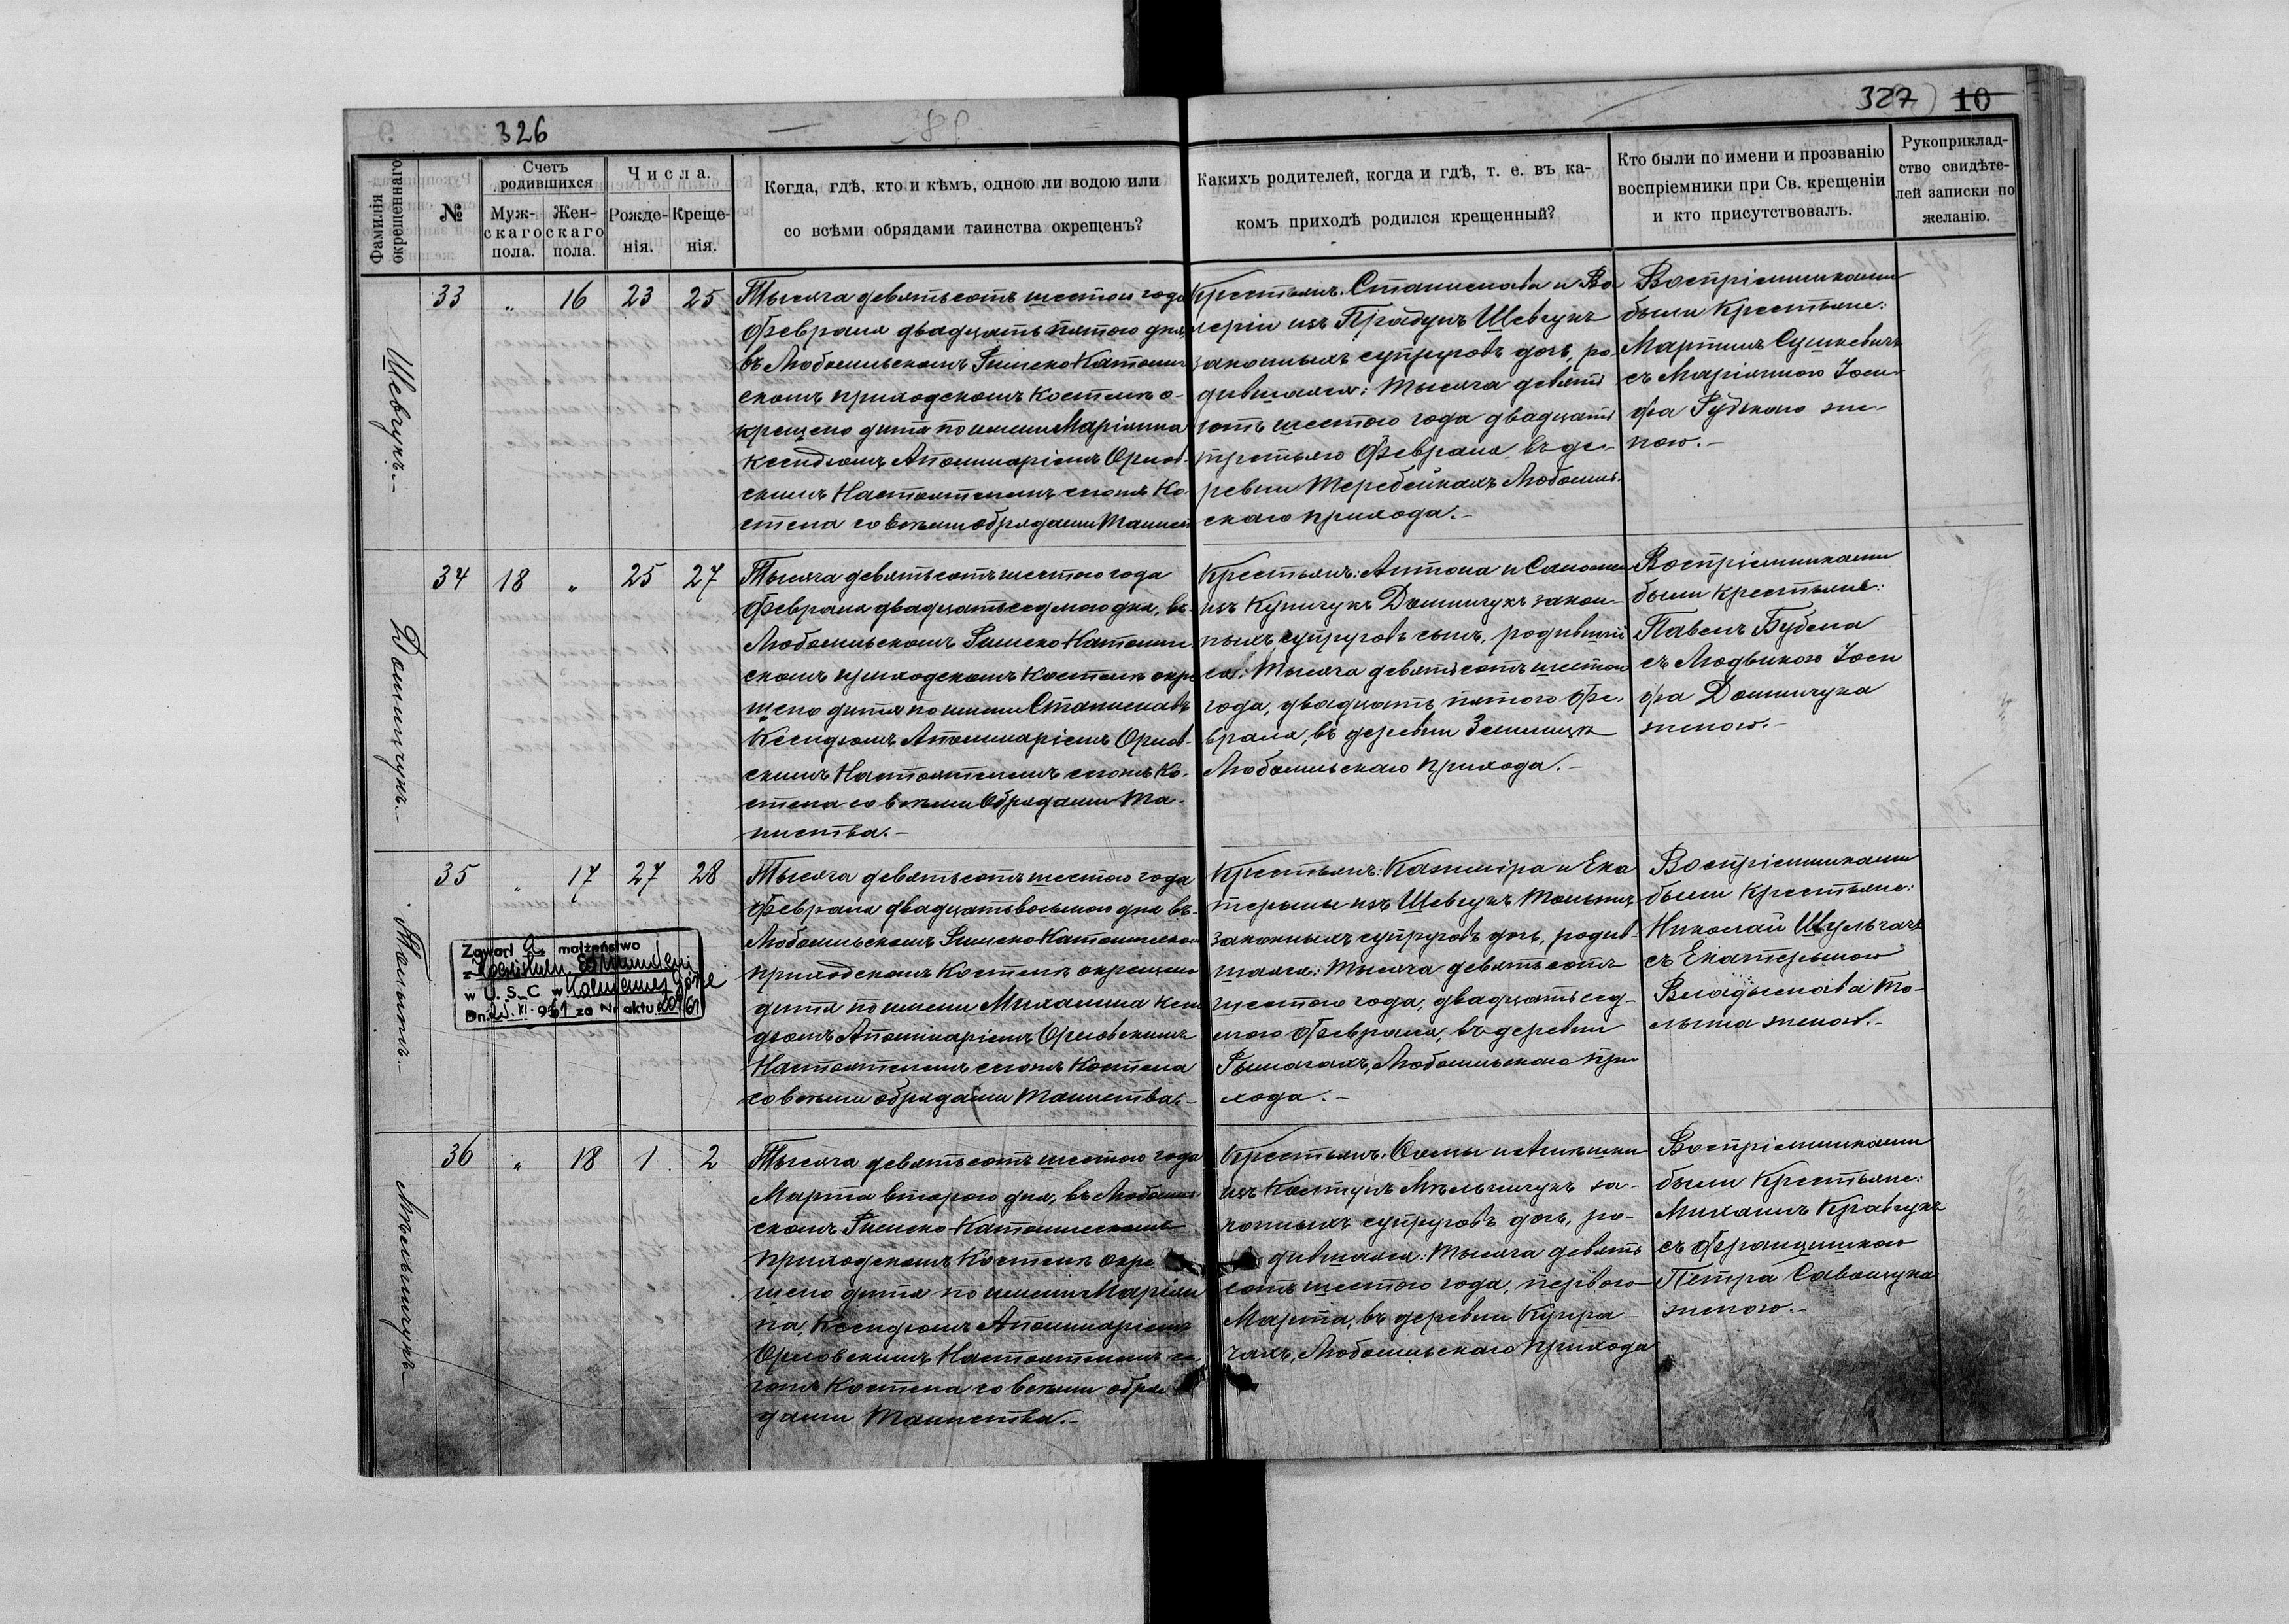 326
327
10
Фамилія окрещеннаго
№
Счетъ родившихся
Муж-
скаго
пола.
Жен-
скаго
пола.
Числа.
Рожде-
нія.
Креще-
нія.
Когда, гдѣ, кто и кѣмъ, одною ли водою или
со всѣми обрядами таинства окрещенъ?
Какихъ родителей, когда и гдѣ, т. е. въ ка-
комъ приходѣ родился крещенный?
Кто были по имени и прозванію
воспріемники при Св. крещеніи
и кто присутствовалъ.
Рукоприклад-
ство свидѣте-
лей записки по
желанію.
Шевчукъ.-
33 " 16 23 25
Тысяча девятьсотъ шестого года
Февраля двадцать пятого дня
въ Любомльскомъ Римско Католич
скомъ приходскомъ Костелѣ о-
крещено дитя по имени Маріянна
Ксендзомъ Аполинаріемъ Орлов-
скимъ Настоятелемъ сгожъ Ко-
стела со всѣми обрядами Таинст
Крестьянъ: Станислава и Ва
леріи изъ Шевчукъ
законныхъ супруговъ дочь, ро
дившаяся: Тысяча девять
сотъ шестого года двадцать
третьяго Февраля, въ де-
ревни Теребейкахъ Любомль-
скаго прихода.-
Воспріемниками
были Крестьяне:
Мартинъ Сушкевичъ
съ Маріянною Іоси-
фа Рудского же-
ною.-
Домничукъ.-
34 18 " 25 27
Тысяча девятьсотъ шестого года
Февраля двадцать седмого дня, въ
Любомльскомъ Римско Католич
скомъ приходскомъ Костелѣ окре
щено дитя по имени Станиславъ
Ксендзомъ Аполинаріемъ Орлов-
скимъ Настоятелемъ сгожъ Ко-
стела со всѣми Обрядами Та-
инства.-
Крестьянъ: Антона и Саломеи
изъ Купчукъ Домничукъ закон-
ныхъ супруговъ сынъ, родившій
ся: Тысяча девятьсотъ шестого
года, двадцать пятого Фе-
враля, въ деревни
Любомльскаго прихода.-
Воспріемниками
были крестьяне:
Павелъ Бубела
съ Людвикою Іоси
фа Домничука
женою.-
35 " 17 27 28
Zawarł małżeństwo
z
w U. S. C w
Dn. XI. 1961 za Nr aktu
Тысяча девятьсотъ шестого года
Февраля двадцать восьмого дня въ
Любомльскомъ Римско Католическом
приходскомъ Костелѣ окрещено
дитя по имени Михалина Ксен
дзомъ Аполинаріемъ Орловскимъ
Настоятелемъ сгожъ Костела
со всѣми обрядами Таинства.-
Крестьянъ: Казиміра и Ека
терины изъ Шевчукъ
законныхъ супруговъ дочь, родив-
шаяся: Тысяча девятьсотъ
шестого года, двадцать сед-
мого Февраля, въ деревни
Рымачахъ, Любомльскаго при
хода.-
Воспріемниками
были Крестьяне:
Николай Шульгачъ
съ Екатериною
Владыслава
женою.-
Мѣльничукъ
36 " 18 1 2
Тысяча девятьсотъ шестого года
Марта второго дня, въ Любомль-
скомъ Римско-Католическомъ
приходскомъ Костелѣ окре
щено дитя по имени Маріян
на, Ксендзомъ Аполинаріемъ
Орловскимъ Настоятелемъ се-
гожъ Костела со всѣми обря
дами Таинства.-
Крестьянъ: Ѳомы и Агнѣшки
изъ Костукъ Мѣльничукъ за-
конныхъ супруговъ дочь, ро-
дившаяся: Тысяча девять
сотъ шестого года, перваго
Марта, въ деревни Купра-
чахъ, Любомльскаго прихода
Воспріемниками
были Крестьяне:
Михаилъ Кравчукъ
съ Францишкою
Петра Савощука
женою.-